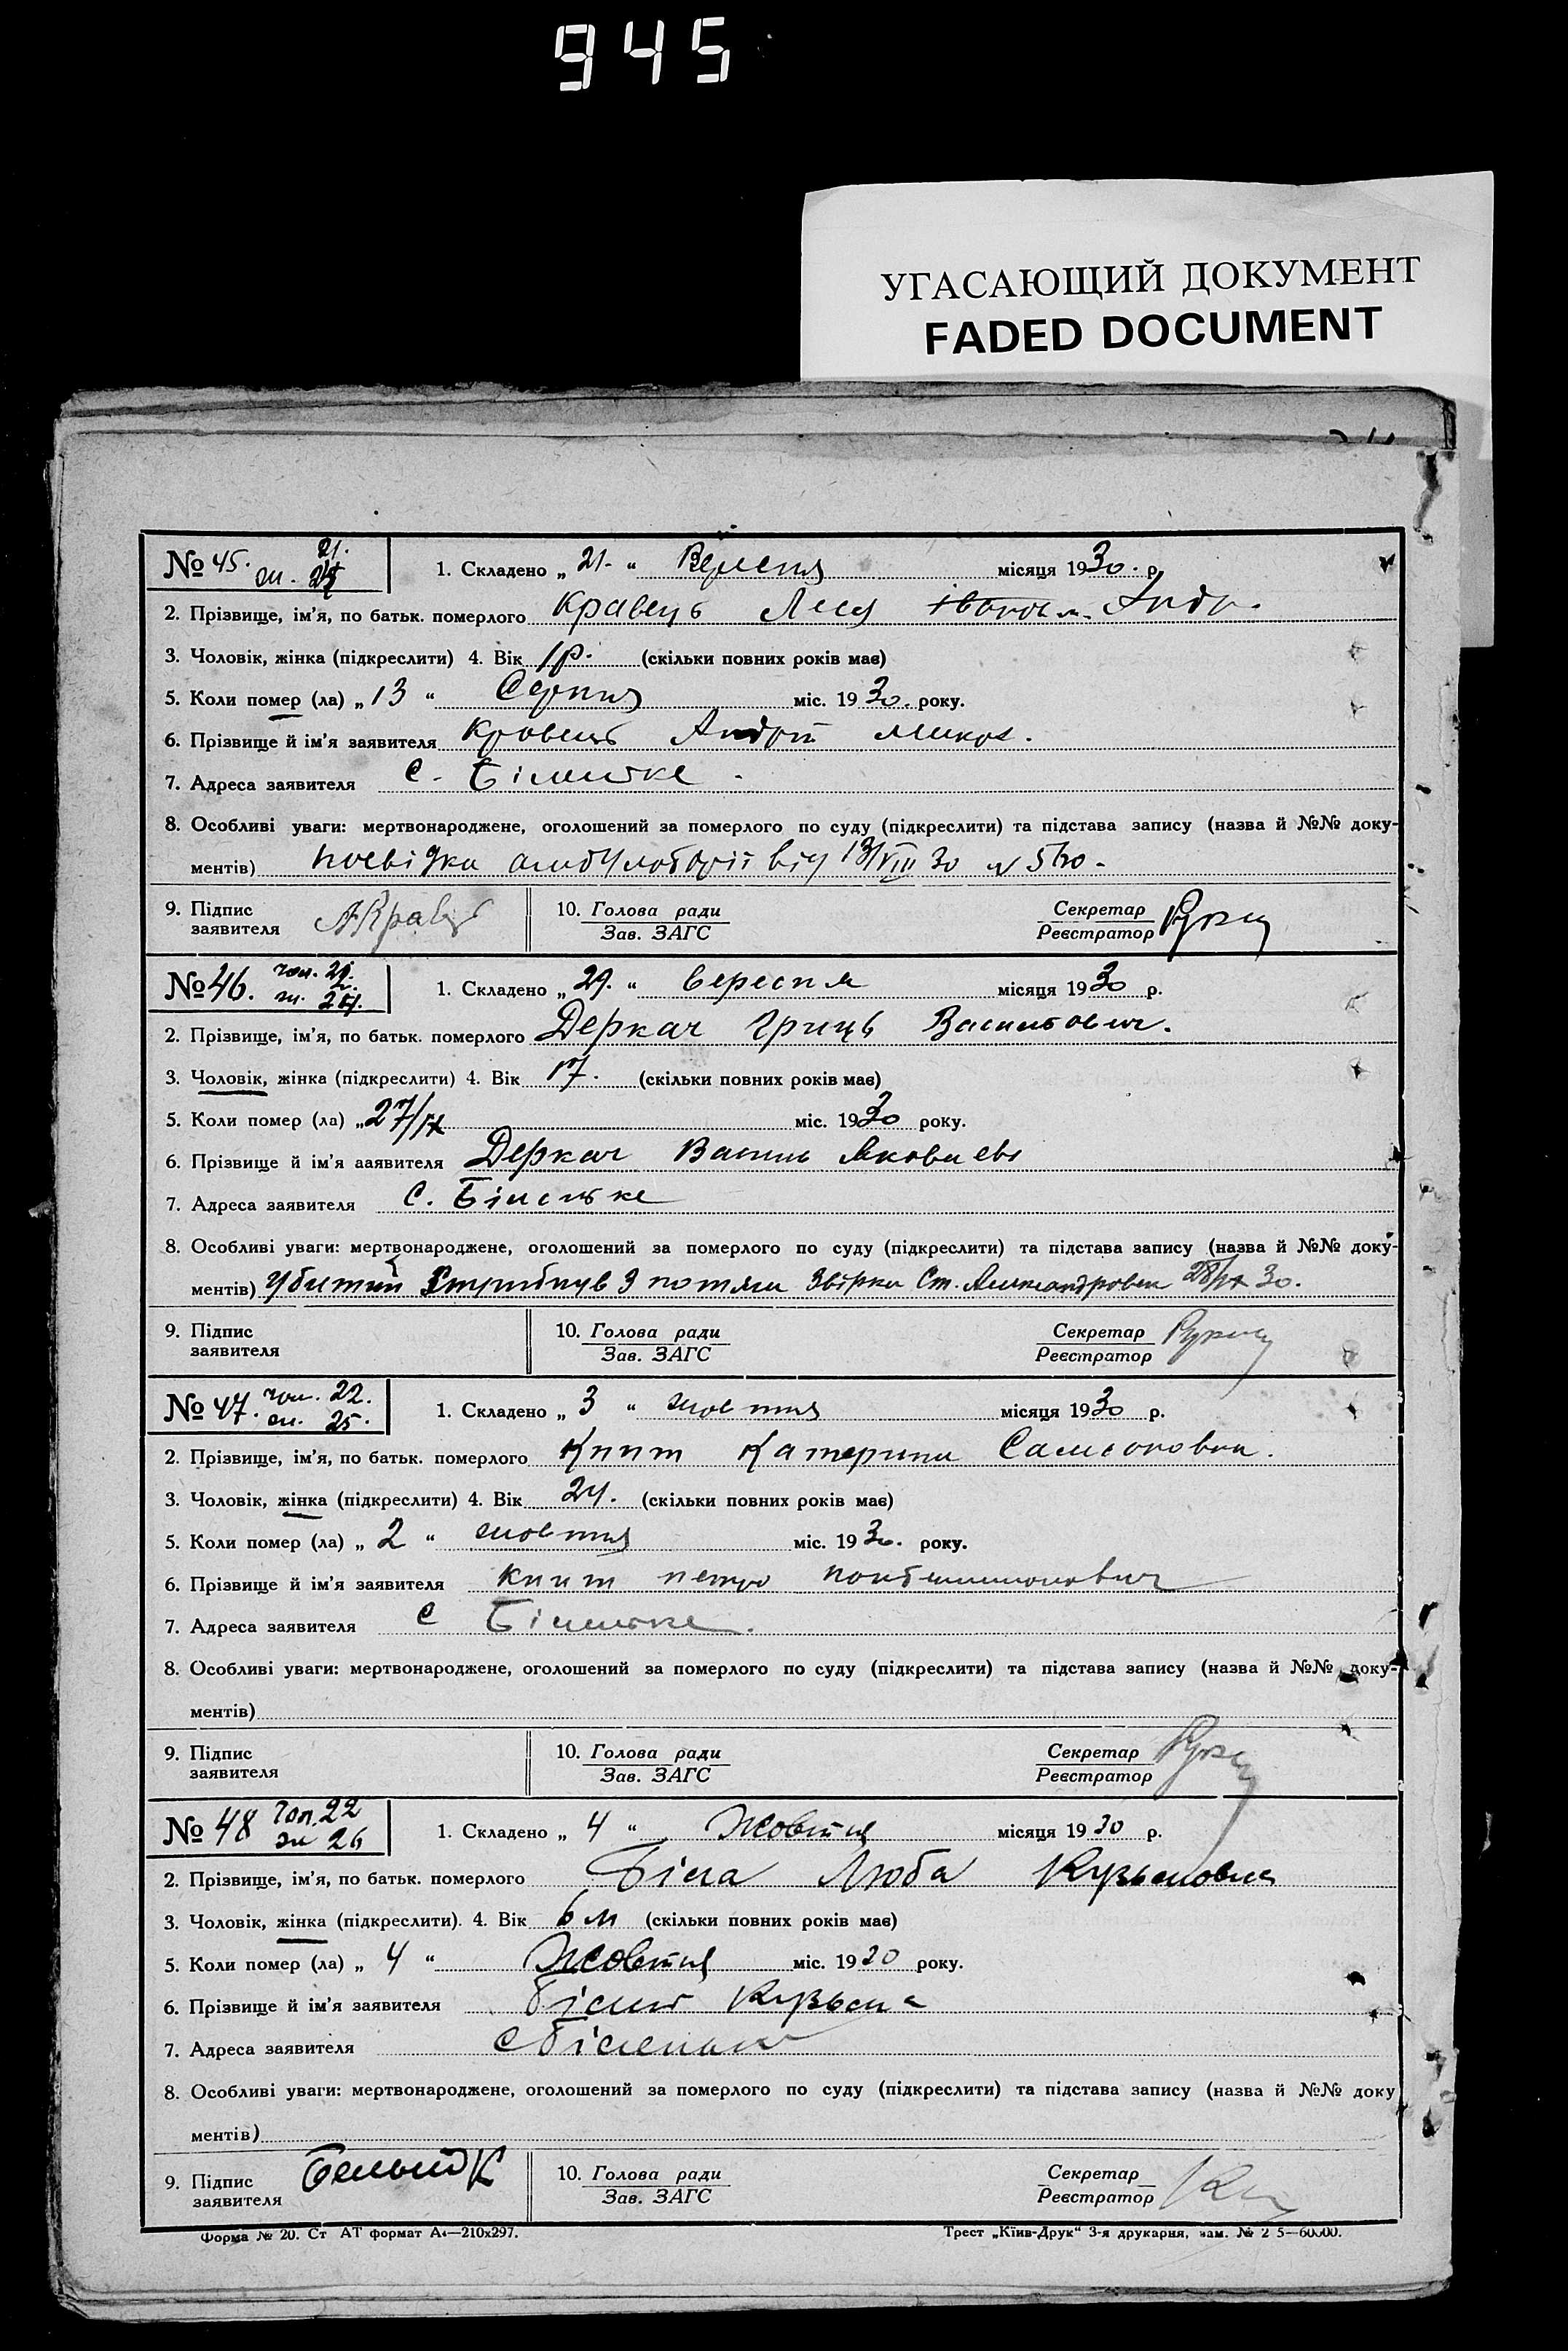 945
УГАСАЮЩИЙ ДОКУМЕНТ
FADED DOCUMENT
№ 45. 21.
1. Складено „ 21. “ Вересня місяця 1930. р.
2. Прізвище, ім’я, по батьк. померлого Кравець Леся
3. Чоловік, жінка (підкреслити) 4. Вік 1р. (скільки повних років має)
5. Коли помер (ла) „ 13 “ Серпня міс. 1930. року.
6. Прізвище й ім’я заявителя Кравець Андрій
7. Адреса заявителя с. Більське.
8. Особливі уваги: мертвонароджене, оголошений за померлого по суду (підкреслити) та підстава запису (назва й №№ доку-
ментів) посвідка амбулаторії від 13/VIII 30
9. Підпис заявителя АКравець
10. Голова ради
Зав. ЗАГС
Секретар
Реєстратор
№ 46. чол. 22.
1. Складено „ 29. “ вересня місяця 1930 р.
2. Прізвище, ім’я, по батьк. померлого Деркач Гриць Васильович.
3. Чоловік, жінка (підкреслити) 4. Вік 17. (скільки повних років має)
5. Коли помер (ла) „ 27/IX міс. 1930 року.
6. Прізвище й ім’я ааявителя Деркач Василь
7. Адреса заявителя с. Більське
8. Особливі уваги: мертвонароджене, оголошений за померлого по суду (підкреслити) та підстава запису (назва й №№ доку-
ментів) Убитий з потяга Ст. 28/IX 30.
9. Підпис заявителя
10. Голова ради
Зав. ЗАГС
Секретар
Реєстратор
№ 47. чол. 22.
жи. 25.
1. Складено „ 3 “ жовтня місяця 1930 р.
2. Прізвище, ім’я, по батьк. померлого Книш Катерина Самсоновна.
3. Чоловік, жінка (підкреслити) 4. Вік 24. (скільки повних років має)
5. Коли помер (ла) „ 2 “ жовтня міс. 1930. року.
6. Прізвище й ім’я заявителя Петро
7. Адреса заявителя с Більське.
8. Особливі уваги: мертвонароджене, оголошений за померлого по суду (підкреслити) та підстава запису (назва й №№ доку-
ментів)
9. Підпис заявителя
10. Голова ради
Зав. ЗАГС
Секретар
Реєстратор
№ 48 Чол. 22
жи 26
1. Складено „ 4 “ Жовтня місяця 1930 р.
2. Прізвище, ім’я, по батьк. померлого Біла Люба Кузьмовна
3. Чоловік, жінка (підкреслити). 4. Вік 6 м (скільки повних років має)
5. Коли помер (ла) „ 4 “ Жовтня міс. 1930 року.
6. Прізвище й ім’я заявителя Білий Кузьма
7. Адреса заявителя с
8. Особливі уваги: мертвонароджене, оголошений за померлого по суду (підкреслити) та підстава запису (назва й №№ доку
ментів)
9. Підпис заявителя Белый К
10. Голова ради
Зав. ЗАГС
Секретар
Реєстратор
Форма № 20. Ст АТ формат А4—210х297.
Трест „Київ-Друк“ 3-я друкарня,